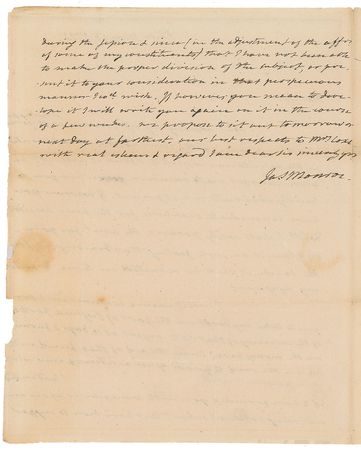 during the session & since (in the adjustment of the affrs
of some of my constituents) that I have not been able
to make the proper division of the subject, or pre-
sent it to your consideration in that perspicuous
manner I co'd wish. If however you mean to
it I will write you again on it in the course
of a few weeks. we propose to set out tomorrow or
next day at farthest. our best respects to Mrs Coxe
with real esteem & regard I am dear sir sincerely yrs
Jas Monroe